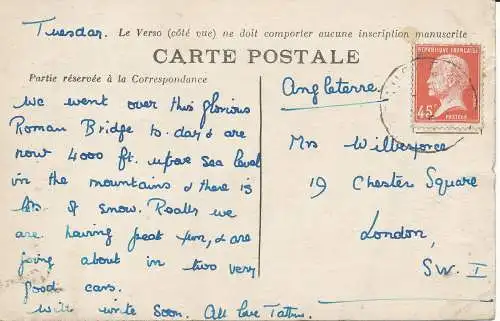 Tuesday.
Le Verso (côté vue) ne doit comporter aucune inscription manuscrite
CARTE POSTALE
Partie réservée à la Correspondance
We went over this glorious
Roman Bridge to day & are
now 4000 ft. above sea level
in the mountains & there is
lots of snow. Really we
are having great fun, & are
going about in two very
good cars.
Will write soon. All love
Angleterre
Mrs Wilberforce
19 Chester Square
London,
S.W. I
REPUBLIQUE FRANÇAISE
45c
POSTES
PASTEUR